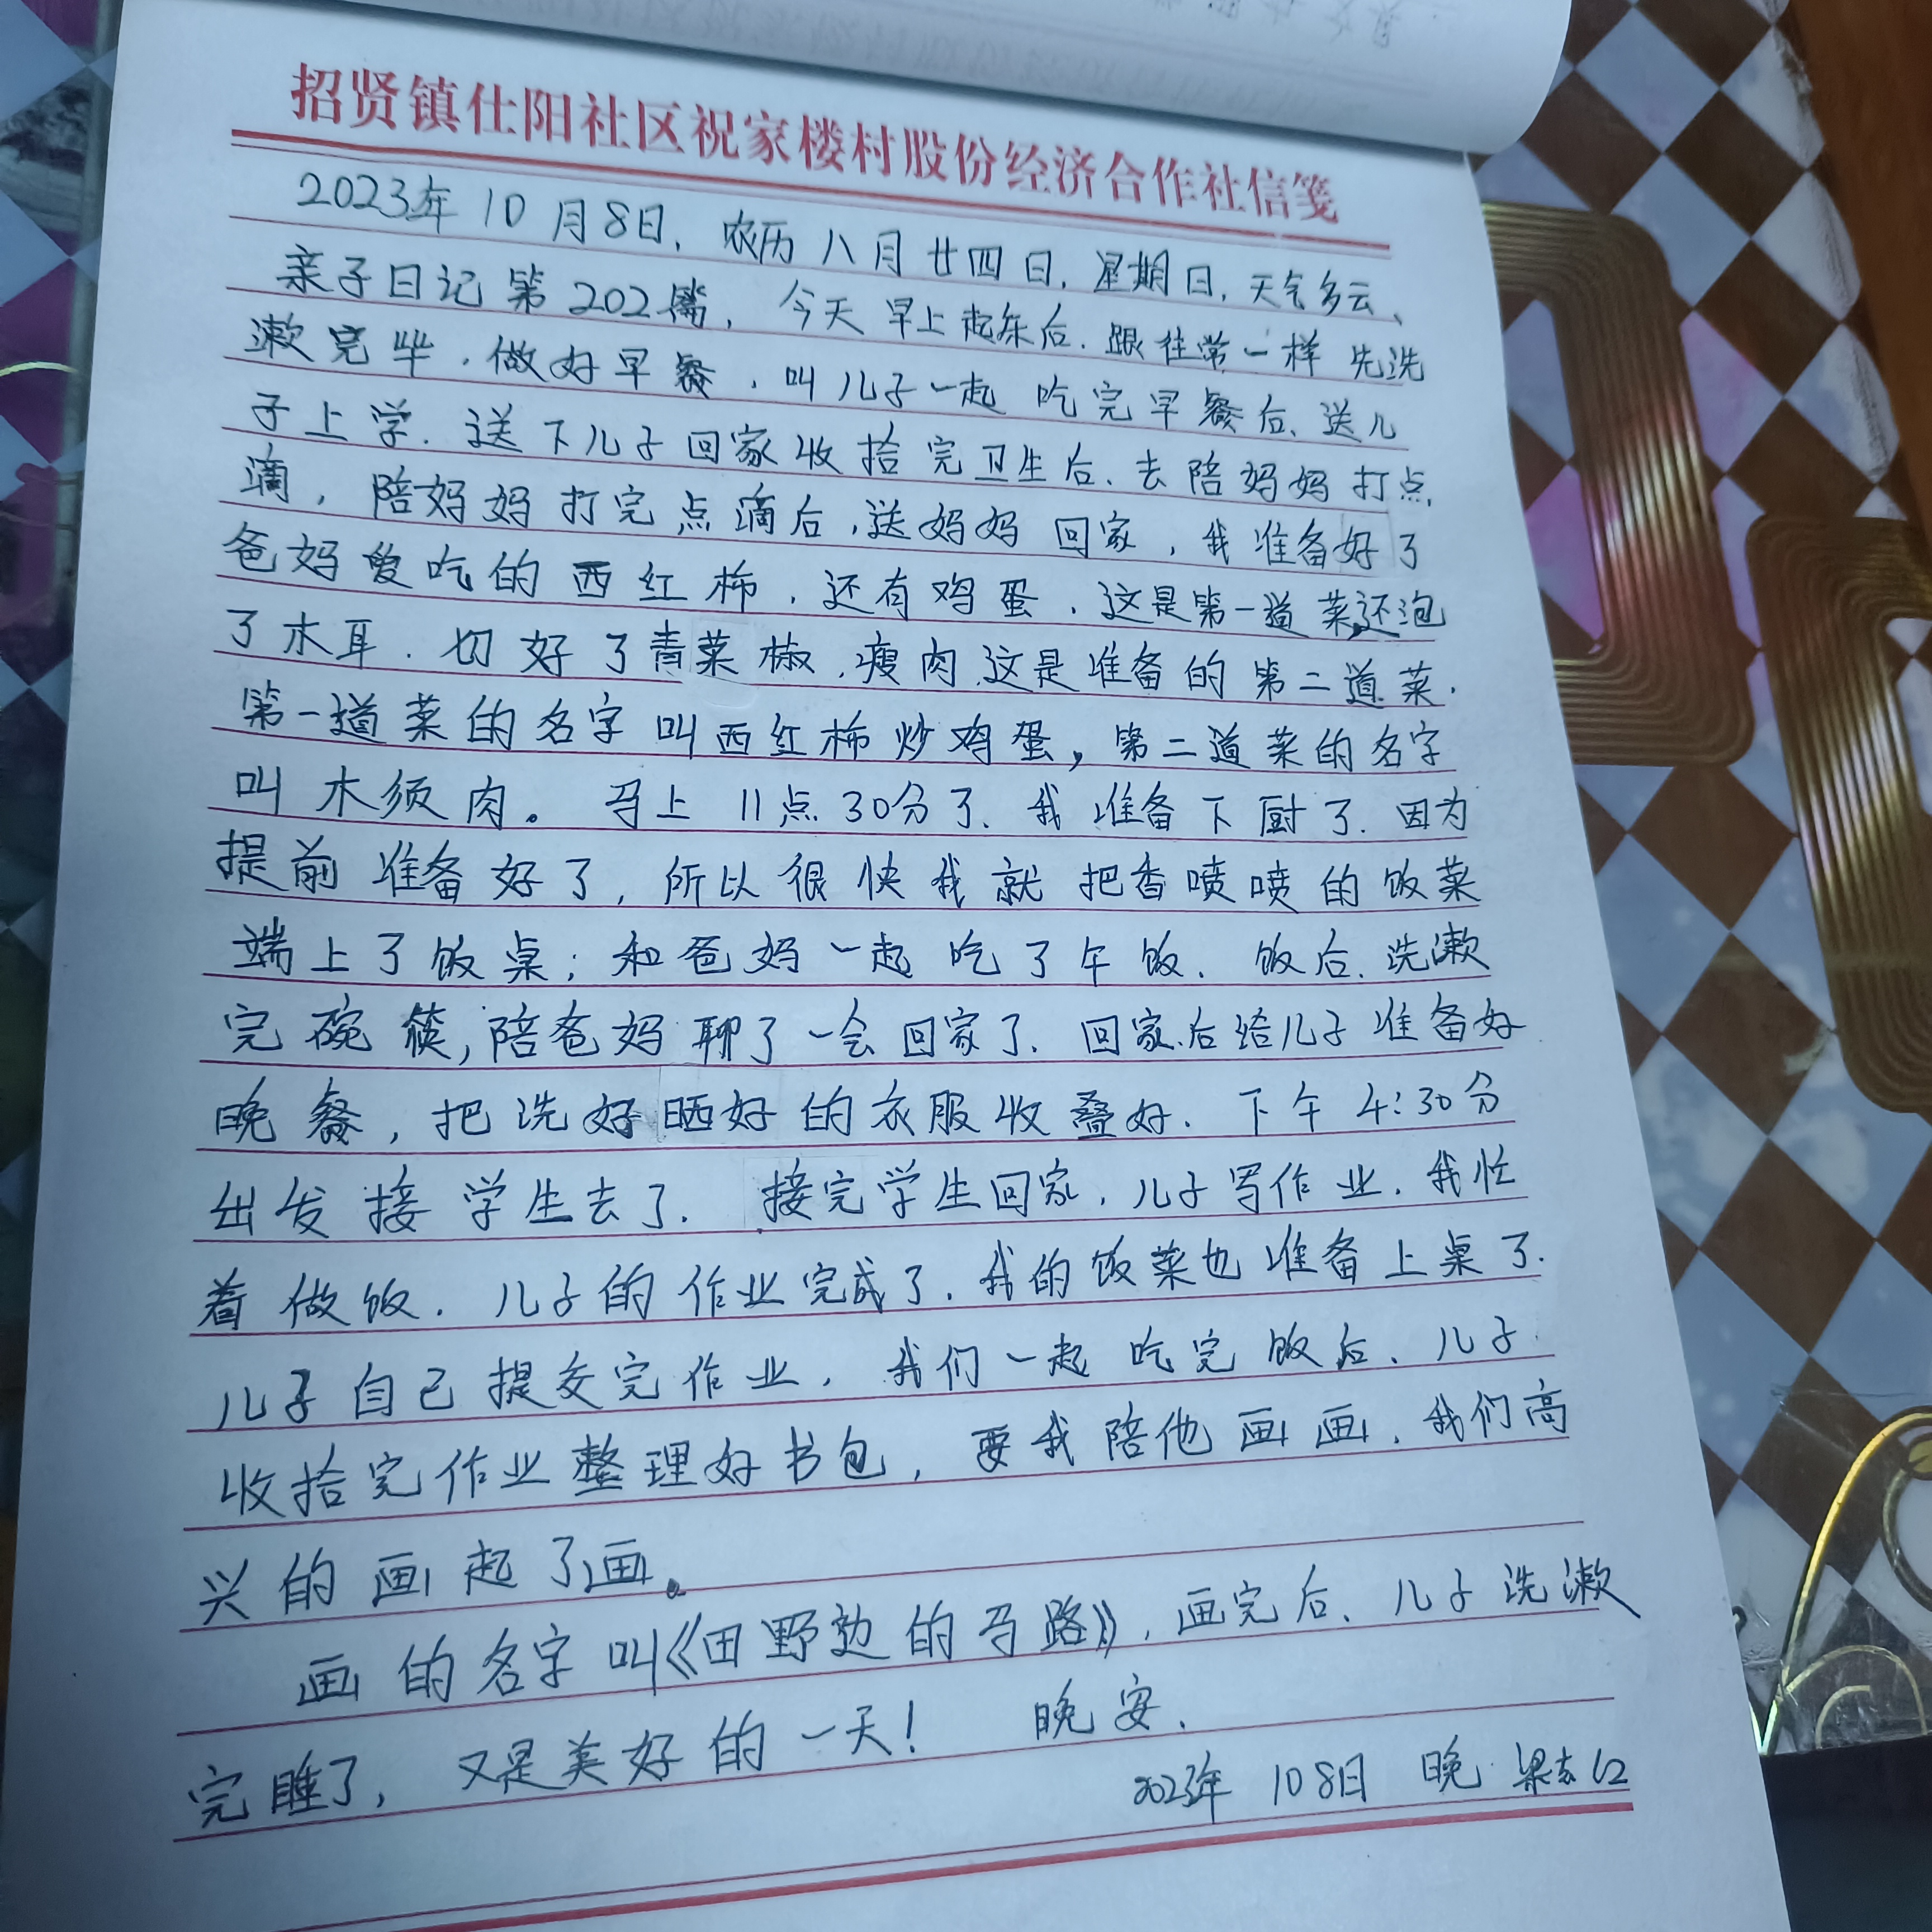 招贤镇仕阳社区祝家楼村股份经济合作社信笺
2023年10月8日，农历八月廿四日，星期日，天气多云、
亲子日记第202篇，今天早上起东后，跟往常一样先洗
漱完毕，做好早餐，叫儿子一起吃完早餐后、送儿
子上学，送下儿子回家收拾完卫生后、去陪妈妈打点
滴，陪妈妈打完点滴后，送妈妈回家，我准备好了
爸妈爱吃的西红柿，还有鸡蛋，这是第一道菜，还泡
了木耳，切好了青菜椒，瘦肉，这是准备的第二道菜，
第一道菜的名字叫西红柿炒鸡蛋，第二道菜的名字
叫木须肉。马上11点30分了、我准备下厨了，因为
提前准备好了，所以很快我就把香喷喷的饭菜
端上了饭桌；和爸妈一起吃了午饭，饭后、洗漱
完碗筷，陪爸妈聊了一会回家了，回家后给儿子准备好
晚餐，把洗好晒好的衣服收叠好，下午4:30分
出发接学生去了，接完学生回家，儿子写作业，我忙
着做饭，儿子的作业完成了，我的饭菜也准备上桌了，
儿子自己提交完作业，我们一起吃完饭后、儿子
收拾完作业整理好书包，要我陪他画画，我们高
兴的画起了画。
画的名字叫《田野边的马路》，画完后、儿子洗漱
完睡了，又是美好的一天！ 晚安，
2023年 10 8日 晚